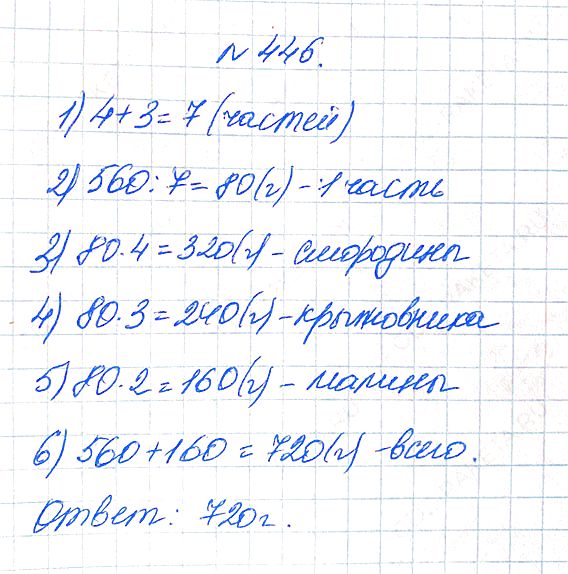 № 446.
1) 4+3=7 (частей)
2) 560:7=80(г) - 1 часть
3) 80·4=320(г) - смородины
4) 80·3=240(г) - крыжовника
5) 80·2=160(г) - малины
6) 560+160=720(г) - всего.
Ответ: 720г.